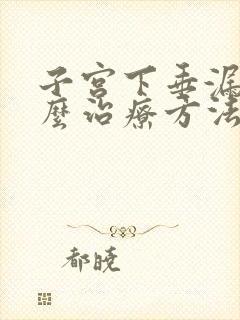 子宫下垂漏
麼治療方法
都曉